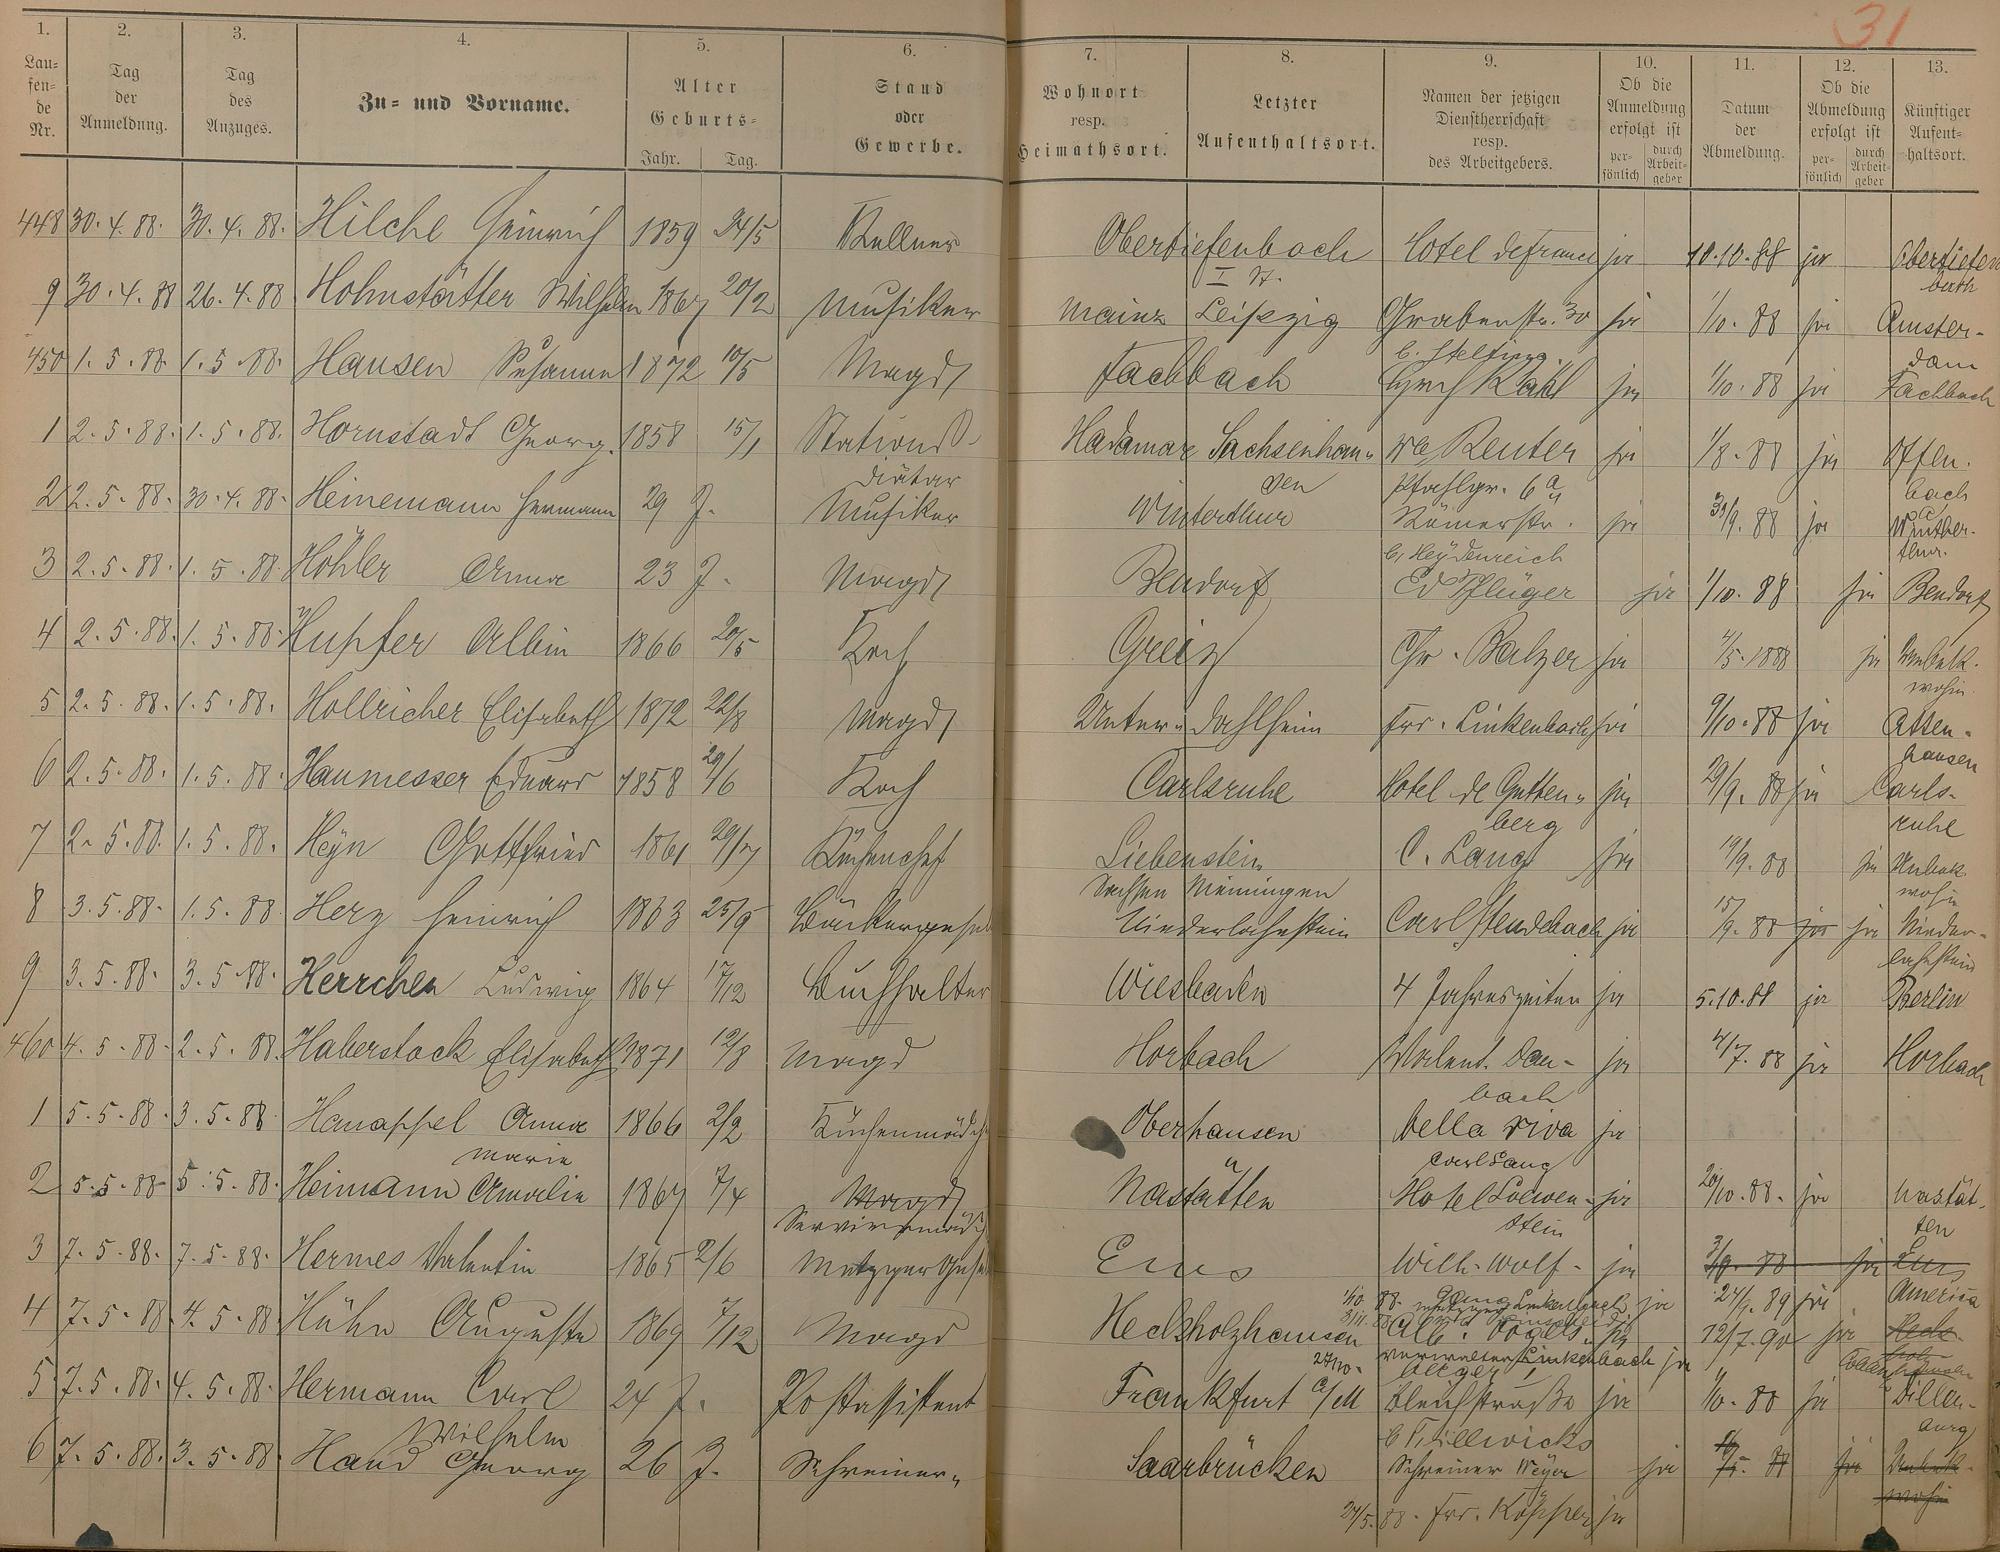 31
1. 2. 3. 4. 5. 6. 7. 8. 9. 10. 11. 12. 13.
Lau=
fen=
de
Nr.
Tag
der
Anmeldung.
Tag
des
Anzuges.
Zu= und Vorname.
Alter
Geburts=
Jahr. Tag.
Stand
oder
Gewerbe.
Wohnort
resp.
Heimathsort.
Letzter
Aufenthaltsort.
Namen der jetzigen
Dienstherrschaft
resp.
des Arbeitgebers.
Ob die
Anmeldung
erfolgt ist
per-
sönlich
durch
Arbeit-
geber
Datum
der
Abmeldung.
Ob die
Abmeldung
erfolgt ist
per-
sönlich
durch
Arbeit-
geber
Künftiger
Aufent-
haltsort.
448 30. 4. 88. 30. 4. 88. Hilche Heinrich 1859 24/5 Kellner Obertiefenbach Hotel de France ja 10. 10. 88 ja Obertiefen
bach
9 30. 4. 88 26. 4. 88 Hohnstätter Wilhelm 1867 20/2 Musiker Mainz Leipzig Grabenstr. 30 ja 1/10. 88 ja Amster-
dam
450 1. 5. 88. 1. 5. 88. Hansen Susanna 1872 10/5 Magd Fachbach Kahl ja 1/10. 88 ja Fachbach
1 2. 5. 88. 1. 5. 88. Hornstadt Georg. 1858 15/1 Stations-
diätar Hadamar Sachsenhau-
sen We Reuter ja 1/8. 88 ja Offen.
bach
Pfahlgr. 6a
2 2. 5. 88. 30. 4. 88. Heinemann Hermann 29 J. Musiker Winterthur Römerstr. ja 30/9. 88 ja Winther-
thur.
b. Heydenreich
3 2. 5. 88. 1. 5. 88. Höhler Anna 23 J. Magd Bendorf Ed Pflüger ja 1/10. 88 ja Bendorf
4 2. 5. 88. 1. 5. 88. Hupfer Albin 1866 20/5 Koch Greiz Chr. Balzer ja /5. 1888 ja Unbek.
wohin.
5 2. 5. 88. 1. 5. 88. Hollricher Elisabeth 1872 22/8 Magd Unter-dahlheim Frd. Linkenbach ja 9/10. 88 ja Atten-
hausen
6 2. 5. 88. 1. 5. 88. Haumesser Eduard 1858 29/6 Koch Carlsruhe Hotel de Gutten-
berg ja 29/9. 88 ja Carls-
ruhe
7 2. 5. 88. 1. 5. 88. Heyn Gottfried 1861 29/7 Küchenchef Liebenstein C. Lang ja 19/9. 88 ja Unbek
wohin
Sachsen Meiningen
8 3. 5. 88. 1. 5. 88. Herz Heinrich 1863 25/9 Bäckergesel Niederlahnstein Carl Stendebach ja 15/9. 88 ja ja Nieder-
lahnstein
9 3. 5. 88. 3. 5. 88. Herrchen Ludwig 1864 17/12 Buchhalter Wiesbaden 4 Jahreszeiten ja 5. 10. 88 ja Berlin
460 4. 5. 88. 2. 5. 88. Haberstock Elisabeth 1871 12/8 Magd Horbach Valent. Dau-
bach ja 4/7. 88 ja Horbach
1 5. 5. 88. 3. 5. 88 Hanappel Anna 1866 2/2 Küchenmädch Oberhausen bella riva ja
Marie
Carl Lang
2 5. 5. 88 5. 5. 88. Heimann Amalie 1867 7/4 Magd
Servirmäd Nastätten Hotel Loewen-
stein ja 20/10. 88. ja Nastät-
ten
3 7. 5. 88. 7. 5. 88. Hermes Valentin 1865 2/6 Metzger Gesel Ems Wilh. Wolf ja 3/9. 88 ja Ems
1/10 88. Linkenbach ja 24/9. 89 ja America
4 7. 5. 88 4. 5. 88 Hühn Auguste 1869 7/12 Magd Heckholzhausen Alb. Vogels- ja 12/7. 90 ja
Verwalter Linkenbach ja
berger
5 7. 5. 88. 4. 5. 88. Hermann Carl 24 J. Postassistent Frankfurt a/M Bleichstraße ja 1/10. 88 ja Dillen-
burg
Wilhelm
6 7. 5. 88. 3. 5. 88. Hand Georg 26 J. Schreiner Saarbrücken Schreiner Weyer ja /5. 88 ja Unbek.
wohin
24/5. 88. Frd. Köpper ja